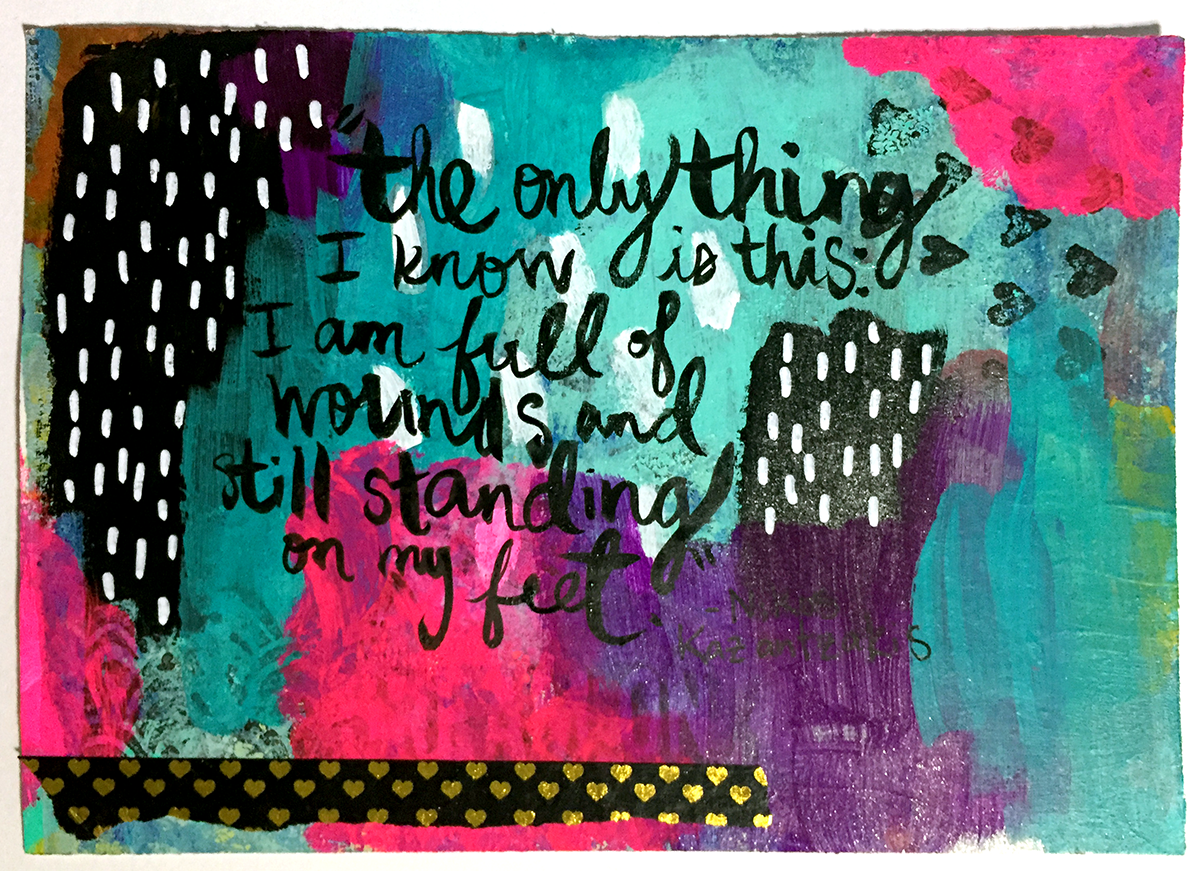 "the only thing
I know is this:
I am full of
wounds and
still standing
on my feet."
- Nikos
Kazantzakis